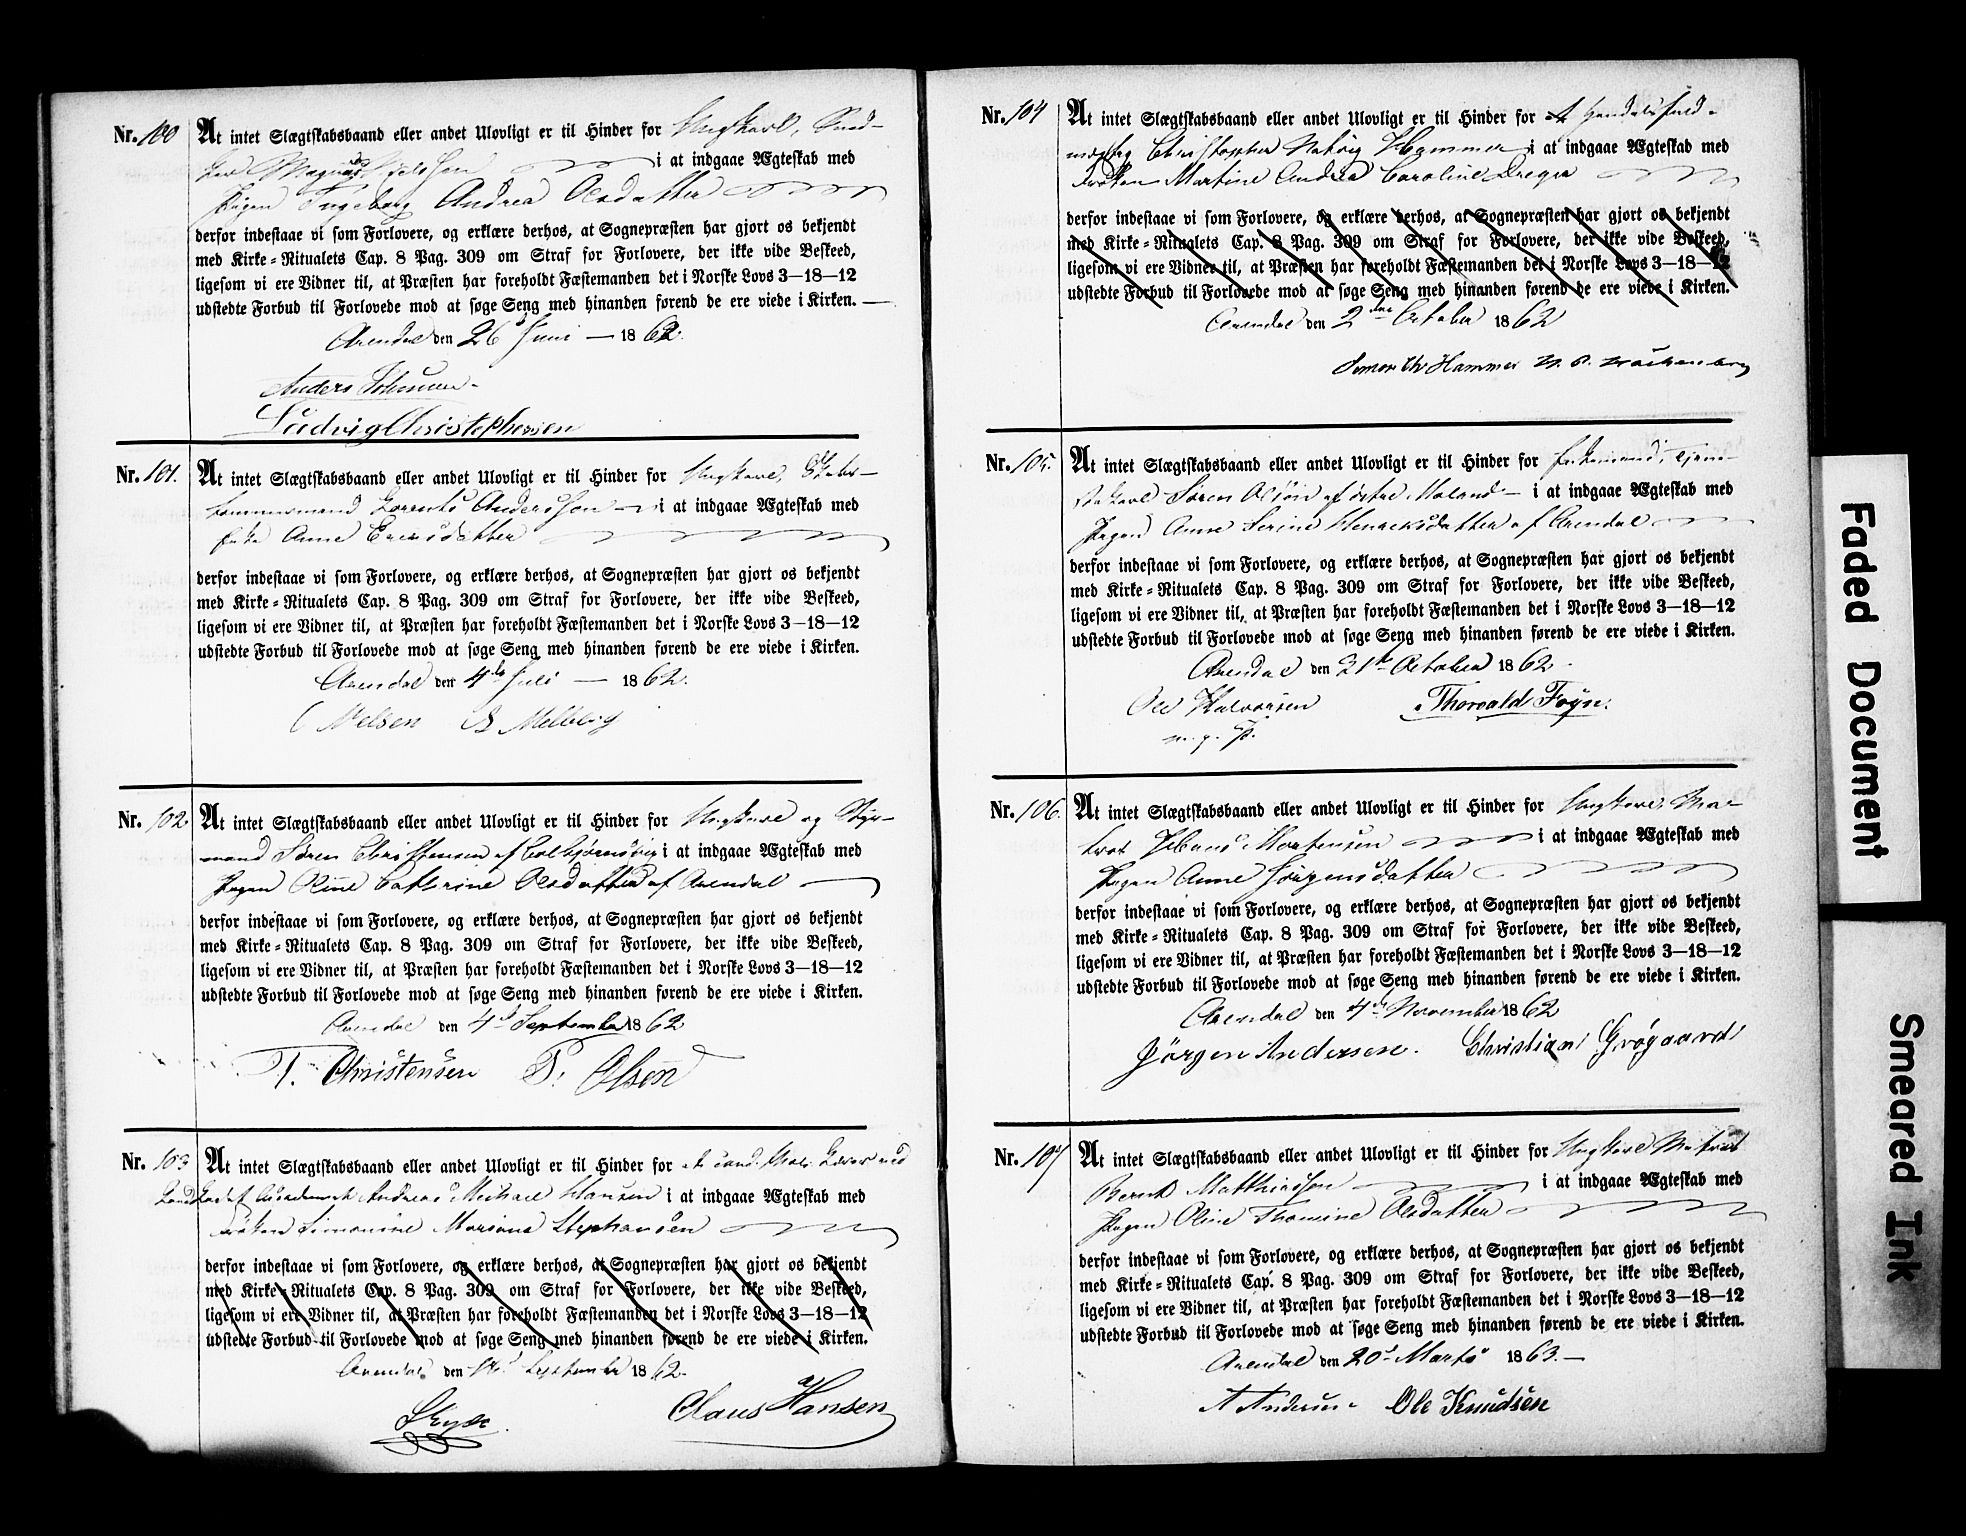 Nr. 100
At intet Slægtskabsbaand eller andet Ulovligt er til Hinder for Ungkarl, Sned-
ker Magnus i at indgaae Ægteskab med
Pigen Ingeborg Andrea Olsdatter
derfor indestaae vi som Forlovere, og erklære derhos, at Sognepræsten har gjort os bekjendt
med Kirke-Ritualets Cap. 8 Pag. 309 om Straf for Forlovere, der ikke vide Beskeed,
ligesom vi ere Vidner til, at Præsten har foreholdt Fæstemanden det i Norske Lovs 3-18-12
udstedte Forbud til Forlovede mod at søge Seng med hinanden førend de ere viede i Kirken.
Arendal den 26 Juni 1862.
Anders
Ludvig Christophersen
Nr. 101.
At intet Slægtskabsbaand eller andet Ulovligt er til Hinder for Ungkarl, Skibs-
tømmermand Lorents Anderssøn i at indgaae Ægteskab med
Enke Anne Eriksdatter
derfor indestaae vi som Forlovere, og erklære derhos, at Sognepræsten har gjort os bekjendt
med Kirke-Ritualets Cap. 8 Pag. 309 om Straf for Forlovere, der ikke vide Beskeed,
ligesom vi ere Vidner til, at Præsten har foreholdt Fæstemanden det i Norske Lovs 3-18-12
udstedte Forbud til Forlovede mod at søge Seng med hinanden førend de ere viede i Kirken.
Arendal den 4de Juli 1862.
C Nelsen B Melberg
Nr. 102
At intet Slægtskabsbaand eller andet Ulovligt er til Hinder for Ungkarl og Styr-
mand Søren Christensen af Colbjørnsvig i at indgaae Ægteskab med
Pigen Oline Cathrine Olsdatter af Arendal
derfor indestaae vi som Forlovere, og erklære derhos, at Sognepræsten har gjort os bekjendt
med Kirke-Ritualets Cap. 8 Pag. 309 om Straf for Forlovere, der ikke vide Beskeed,
ligesom vi ere Vidner til, at Præsten har foreholdt Fæstemanden det i Norske Lovs 3-18-12
udstedte Forbud til Forlovede mod at søge Seng med hinanden førend de ere viede i Kirken.
Arendal den 4d September 1862
T. Christensen P. Olsen
Nr. 103
At intet Slægtskabsbaand eller andet Ulovligt er til Hinder for at Cand. Theol. Lærer ved
Andreas Michael Hansen i at indgaae Ægteskab med
Frøken Simonine Mariane Stephansen
derfor indestaae vi som Forlovere, og erklære derhos, at Sognepræsten har gjort os bekjendt
med Kirke-Ritualets Cap. 8 Pag. 309 om Straf for Forlovere, der ikke vide Beskeed,
ligesom vi ere Vidner til, at Præsten har foreholdt Fæstemanden det i Norske Lovs 3-18-12
udstedte Forbud til Forlovede mod at søge Seng med hinanden førend de ere viede i Kirken.
Arendal den September 1862.
Claus Hansen
Nr. 104
At intet Slægtskabsbaand eller andet Ulovligt er til Hinder for at Handelsfuld-
mægtig Christopher Hammer i at indgaae Ægteskab med
Frøken Martine Andrea Caroline Dreyer
derfor indestaae vi som Forlovere, og erklære derhos, at Sognepræsten har gjort os bekjendt
med Kirke-Ritualets Cap. 8 Pag. 309 om Straf for Forlovere, der ikke vide Beskeed,
ligesom vi ere Vidner til, at Præsten har foreholdt Fæstemanden det i Norske Lovs 3-18-12
udstedte Forbud til Forlovede mod at søge Seng med hinanden førend de ere viede i Kirken.
Arendal den 2den October 1862
Simon Chr Hammer
Nr. 105.
At intet Slægtskabsbaand eller andet Ulovligt er til Hinder for Enkemand, Tjene-
stekarl Søren Olsøn af østre Moland i at indgaae Ægteskab med
Pigen Anne Serine Henriksdatter af Arendal
derfor indestaae vi som Forlovere, og erklære derhos, at Sognepræsten har gjort os bekjendt
med Kirke-Ritualets Cap. 8 Pag. 309 om Straf for Forlovere, der ikke vide Beskeed,
ligesom vi ere Vidner til, at Præsten har foreholdt Fæstemanden det i Norske Lovs 3-18-12
udstedte Forbud til Forlovede mod at søge Seng med hinanden førend de ere viede i Kirken.
Arendal den 21de October 1862.
Ole Halvorsen Thorvald Foyn.
m. p. P.
Nr. 106.
At intet Slægtskabsbaand eller andet Ulovligt er til Hinder for Ungkarl, Ma-
tros Hans Mortensen i at indgaae Ægteskab med
Pigen Anne Jørgensdatter
derfor indestaae vi som Forlovere, og erklære derhos, at Sognepræsten har gjort os bekjendt
med Kirke-Ritualets Cap. 8 Pag. 309 om Straf for Forlovere, der ikke vide Beskeed,
ligesom vi ere Vidner til, at Præsten har foreholdt Fæstemanden det i Norske Lovs 3-18-12
udstedte Forbud til Forlovede mod at søge Seng med hinanden førend de ere viede i Kirken.
Arendal den 4de November 1862
Jørgen Andersen. Christian Grøgaard
Nr. 107
At intet Slægtskabsbaand eller andet Ulovligt er til Hinder for Ungkarl Matros
Bernt Matthiassøn i at indgaae Ægteskab med
Pigen Oline Thomine Olsdatter
derfor indestaae vi som Forlovere, og erklære derhos, at Sognepræsten har gjort os bekjendt
med Kirke-Ritualets Cap. 8 Pag. 309 om Straf for Forlovere, der ikke vide Beskeed,
ligesom vi ere Vidner til, at Præsten har foreholdt Fæstemanden det i Norske Lovs 3-18-12
udstedte Forbud til Forlovede mod at søge Seng med hinanden førend de ere viede i Kirken.
Arendal den 20d Marts 1863.
A Andersen Ole Knudsen
Faded Document
Smeared Ink